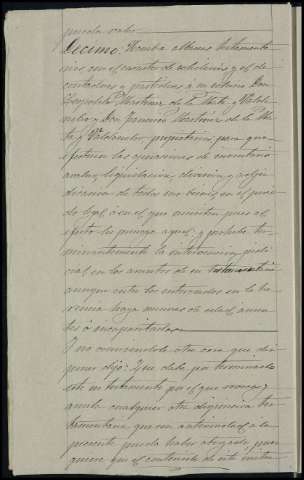 pueda valer
Decimo: Nombra albaceas testamenta-
rios con el caracter de solidarios y el de
contadores y partidores a sus sobrinos Don
Leopoldo Martinez de la Mata y Valde-
 y Don Francisco Martinez de la Ma-
ta y propietarios, para que
efectuen las operaciones de inventario
avaluo, liquidacion, division y adju-
dicacion de todos sus bienes, en el perio-
do legal, ó en el que necesiten pues al
efecto les proroga aquel; y prohibe ter-
minantemente la intervencion judi-
cial en los asuntos de su testamentaria
aunque entre los interesados en la he-
rencia haya menores de edad, ausen-
tes ó incapacitados
Y no conviniendole otra cosa que dis-
poner dijo: Que daba por terminado
este su testamento por el que revoca y
anula cualquier otra disposicion tes-
tamentaria que con anterioridad a la
presente pueda haber otorgado, pues
quiere que el contenido de este instru-